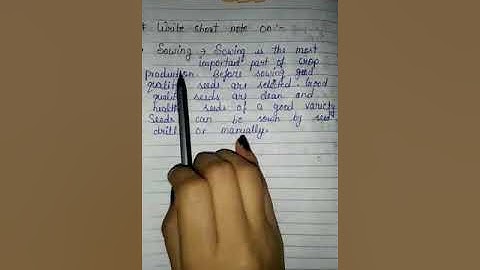 * Write short note on :-
Sowing → Sowing is the most
important part of crop
production. Before sowing good
quality seeds are selected. Good
quality seeds are clean and
healthy seeds of a good variety.
Seeds can be sown by seed
drill or manually.